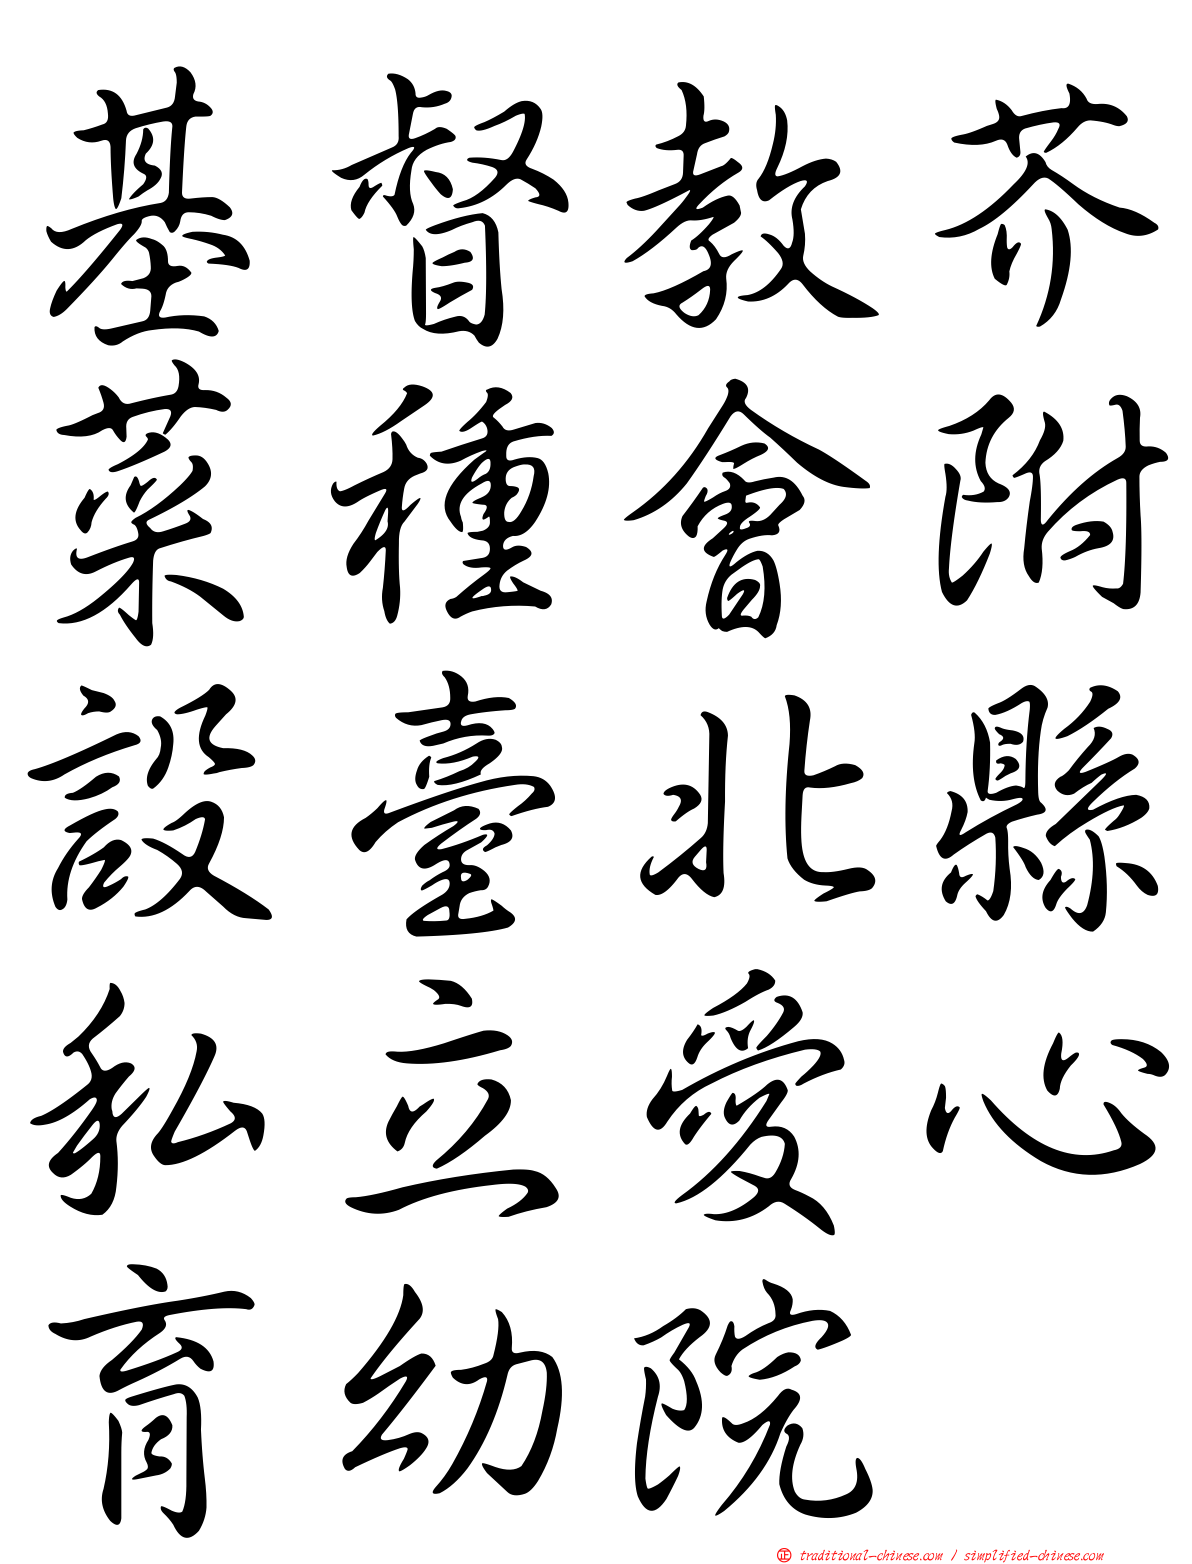 基督教芥
菜種會附
設臺北縣
私立愛心
育幼院
正 traditional-chinese.com / simplified-chinese.com